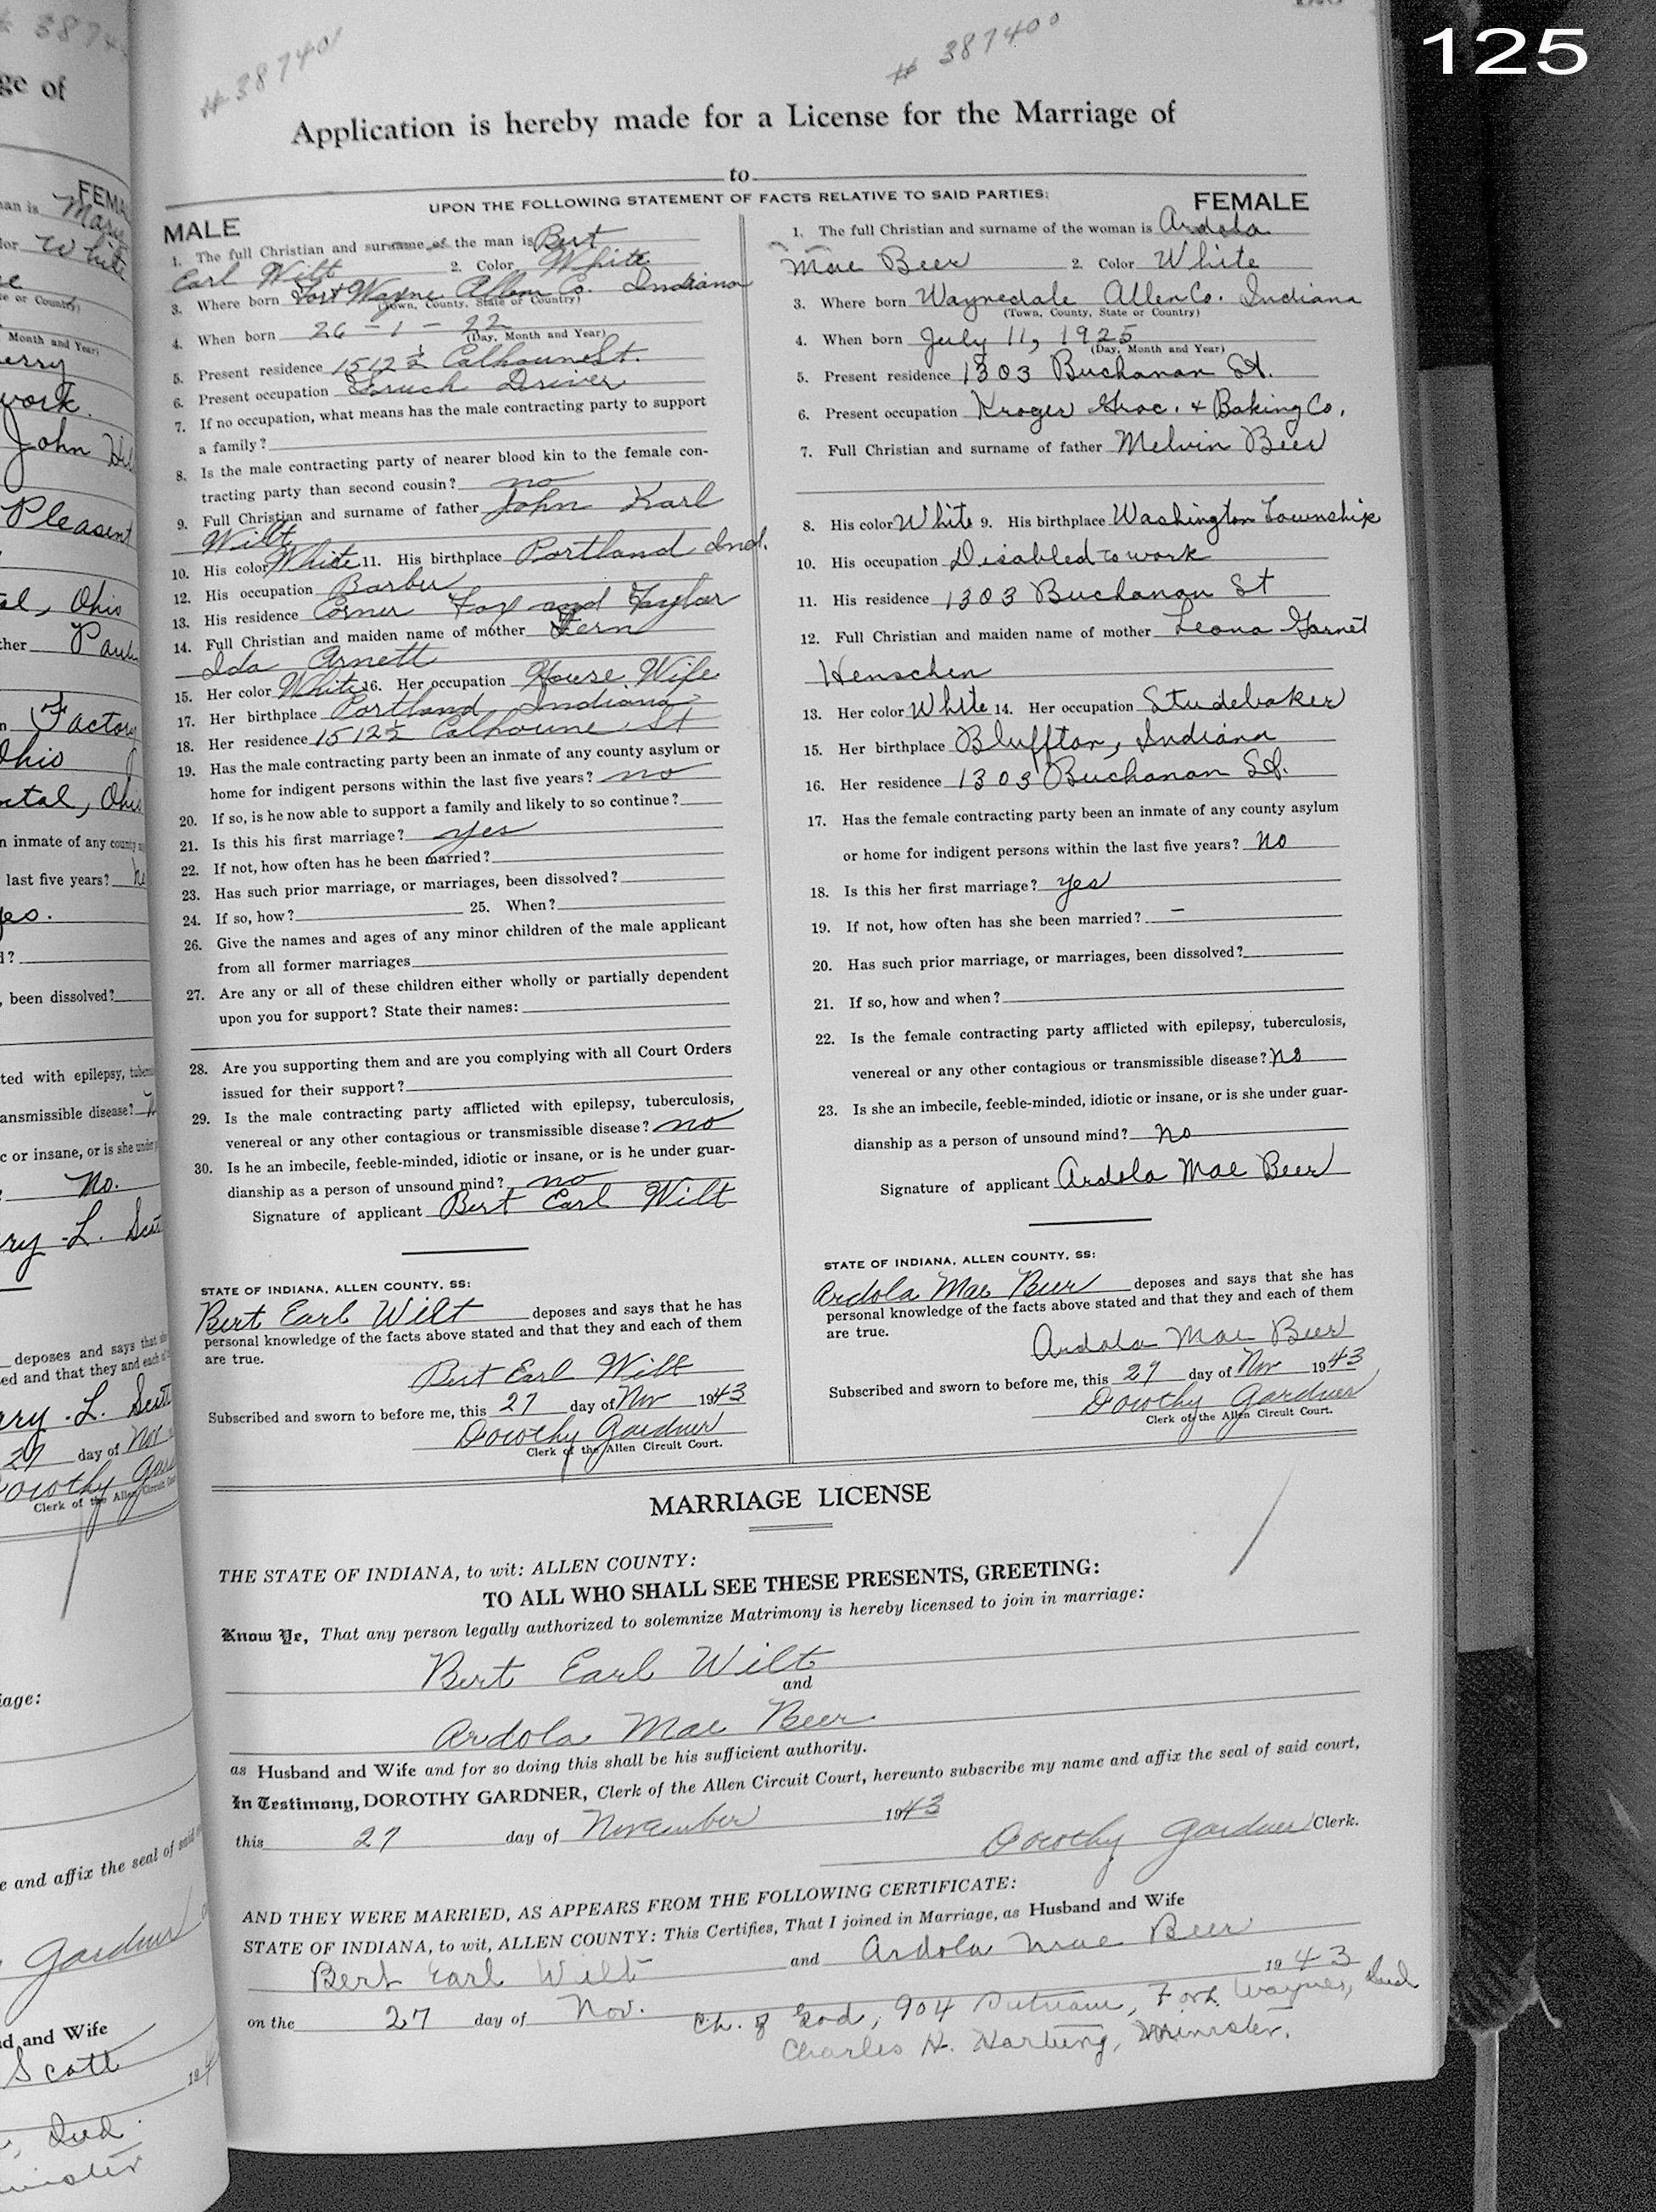 125
# 387401
# 387400
Application is hereby made for a License for the Marriage of
to
UPON THE FOLLOWING STATEMENT OF FACTS RELATIVE TO SAID PARTIES:
MALE
1. The full Christian and surname of the man is Bert
Earl Wilt 2. Color White
3. Where born Fort Wayne Allen Co. Indiana
(Town, County, State or Country)
4. When born 26-1-22
(Day, Month and Year)
5. Present residence 1512½ Calhoune St.
6. Present occupation Driver
7. If no occupation, what means has the male contracting party to support
a family?
8. Is the male contracting party of nearer blood kin to the female con-
tracting party than second cousin? no
9. Full Christian and surname of father John Karl
Wilt
10. His color White 11. His birthplace Portland Ind.
12. His occupation Barber
13. His residence Corner Fox and Taylor
14. Full Christian and maiden name of mother Fern
Ida Arnett
15. Her color White 16. Her occupation House Wife
17. Her birthplace Portland Indiana
18. Her residence 1512½ Calhoune St
19. Has the male contracting party been an inmate of any county asylum or
home for indigent persons within the last five years? no
20. If so, is he now able to support a family and likely to so continue?
21. Is this his first marriage? yes
22. If not, how often has he been married?
23. Has such prior marriage, or marriages, been dissolved?
24. If so, how? 25. When?
26. Give the names and ages of any minor children of the male applicant
from all former marriages
27. Are any or all of these children either wholly or partially dependent
upon you for support? State their names:
28. Are you supporting them and are you complying with all Court Orders
issued for their support?
29. Is the male contracting party afflicted with epilepsy, tuberculosis,
venereal or any other contagious or transmissible disease? no
30. Is he an imbecile, feeble-minded, idiotic or insane, or is he under guar-
dianship as a person of unsound mind? no
Signature of applicant Bert Earl Wilt
STATE OF INDIANA, ALLEN COUNTY, SS:
Bert Earl Wilt deposes and says that he has
personal knowledge of the facts above stated and that they and each of them
are true.
Bert Earl Wilt
Subscribed and sworn to before me, this 27 day of Nov 1943
Dorothy Gardner
Clerk of the Allen Circuit Court.
FEMALE
1. The full Christian and surname of the woman is Ardola
Mae Beer 2. Color White
3. Where born Waynedale Allen Co. Indiana
(Town, County, State or Country)
4. When born July 11, 1925
(Day, Month and Year)
5. Present residence 1303 Buchanan St.
6. Present occupation Kroger Groc. & Baking Co.
7. Full Christian and surname of father Melvin Beer
8. His color White 9. His birthplace Washington Township
10. His occupation Disabled to work
11. His residence 1303 Buchanan St
12. Full Christian and maiden name of mother Leona Garnet
Henschen
13. Her color White 14. Her occupation Studebaker
15. Her birthplace Bluffton, Indiana
16. Her residence 1303 Buchanan St.
17. Has the female contracting party been an inmate of any county asylum
or home for indigent persons within the last five years? no
18. Is this her first marriage? yes
19. If not, how often has she been married? -
20. Has such prior marriage, or marriages, been dissolved?
21. If so, how and when?
22. Is the female contracting party afflicted with epilepsy, tuberculosis,
venereal or any other contagious or transmissible disease? no
23. Is she an imbecile, feeble-minded, idiotic or insane, or is she under guar-
dianship as a person of unsound mind? no
Signature of applicant Ardola Mae Beer
STATE OF INDIANA, ALLEN COUNTY, SS:
Ardola Mae Beer deposes and says that she has
personal knowledge of the facts above stated and that they and each of them
are true.
Ardola Mae Beer
Subscribed and sworn to before me, this 27 day of Nov 1943
Dorothy Gardner
Clerk of the Allen Circuit Court.
MARRIAGE LICENSE
THE STATE OF INDIANA, to wit: ALLEN COUNTY:
TO ALL WHO SHALL SEE THESE PRESENTS, GREETING:
Know Ye, That any person legally authorized to solemnize Matrimony is hereby licensed to join in marriage:
Bert Earl Wilt
and
Ardola Mae Beer
as Husband and Wife and for so doing this shall be his sufficient authority.
In Testimony, DOROTHY GARDNER, Clerk of the Allen Circuit Court, hereunto subscribe my name and affix the seal of said court,
this 27 day of November 1943
Dorothy Gardner Clerk.
AND THEY WERE MARRIED, AS APPEARS FROM THE FOLLOWING CERTIFICATE:
STATE OF INDIANA, to wit, ALLEN COUNTY: This Certifies, That I joined in Marriage, as Husband and Wife
Bert Earl Wilt and Ardola Mae Beer
on the 27 day of Nov. 1943
Ch. of God, 904 Putnam, Fort Wayne, Ind
Charles H. Hartung, Minister.